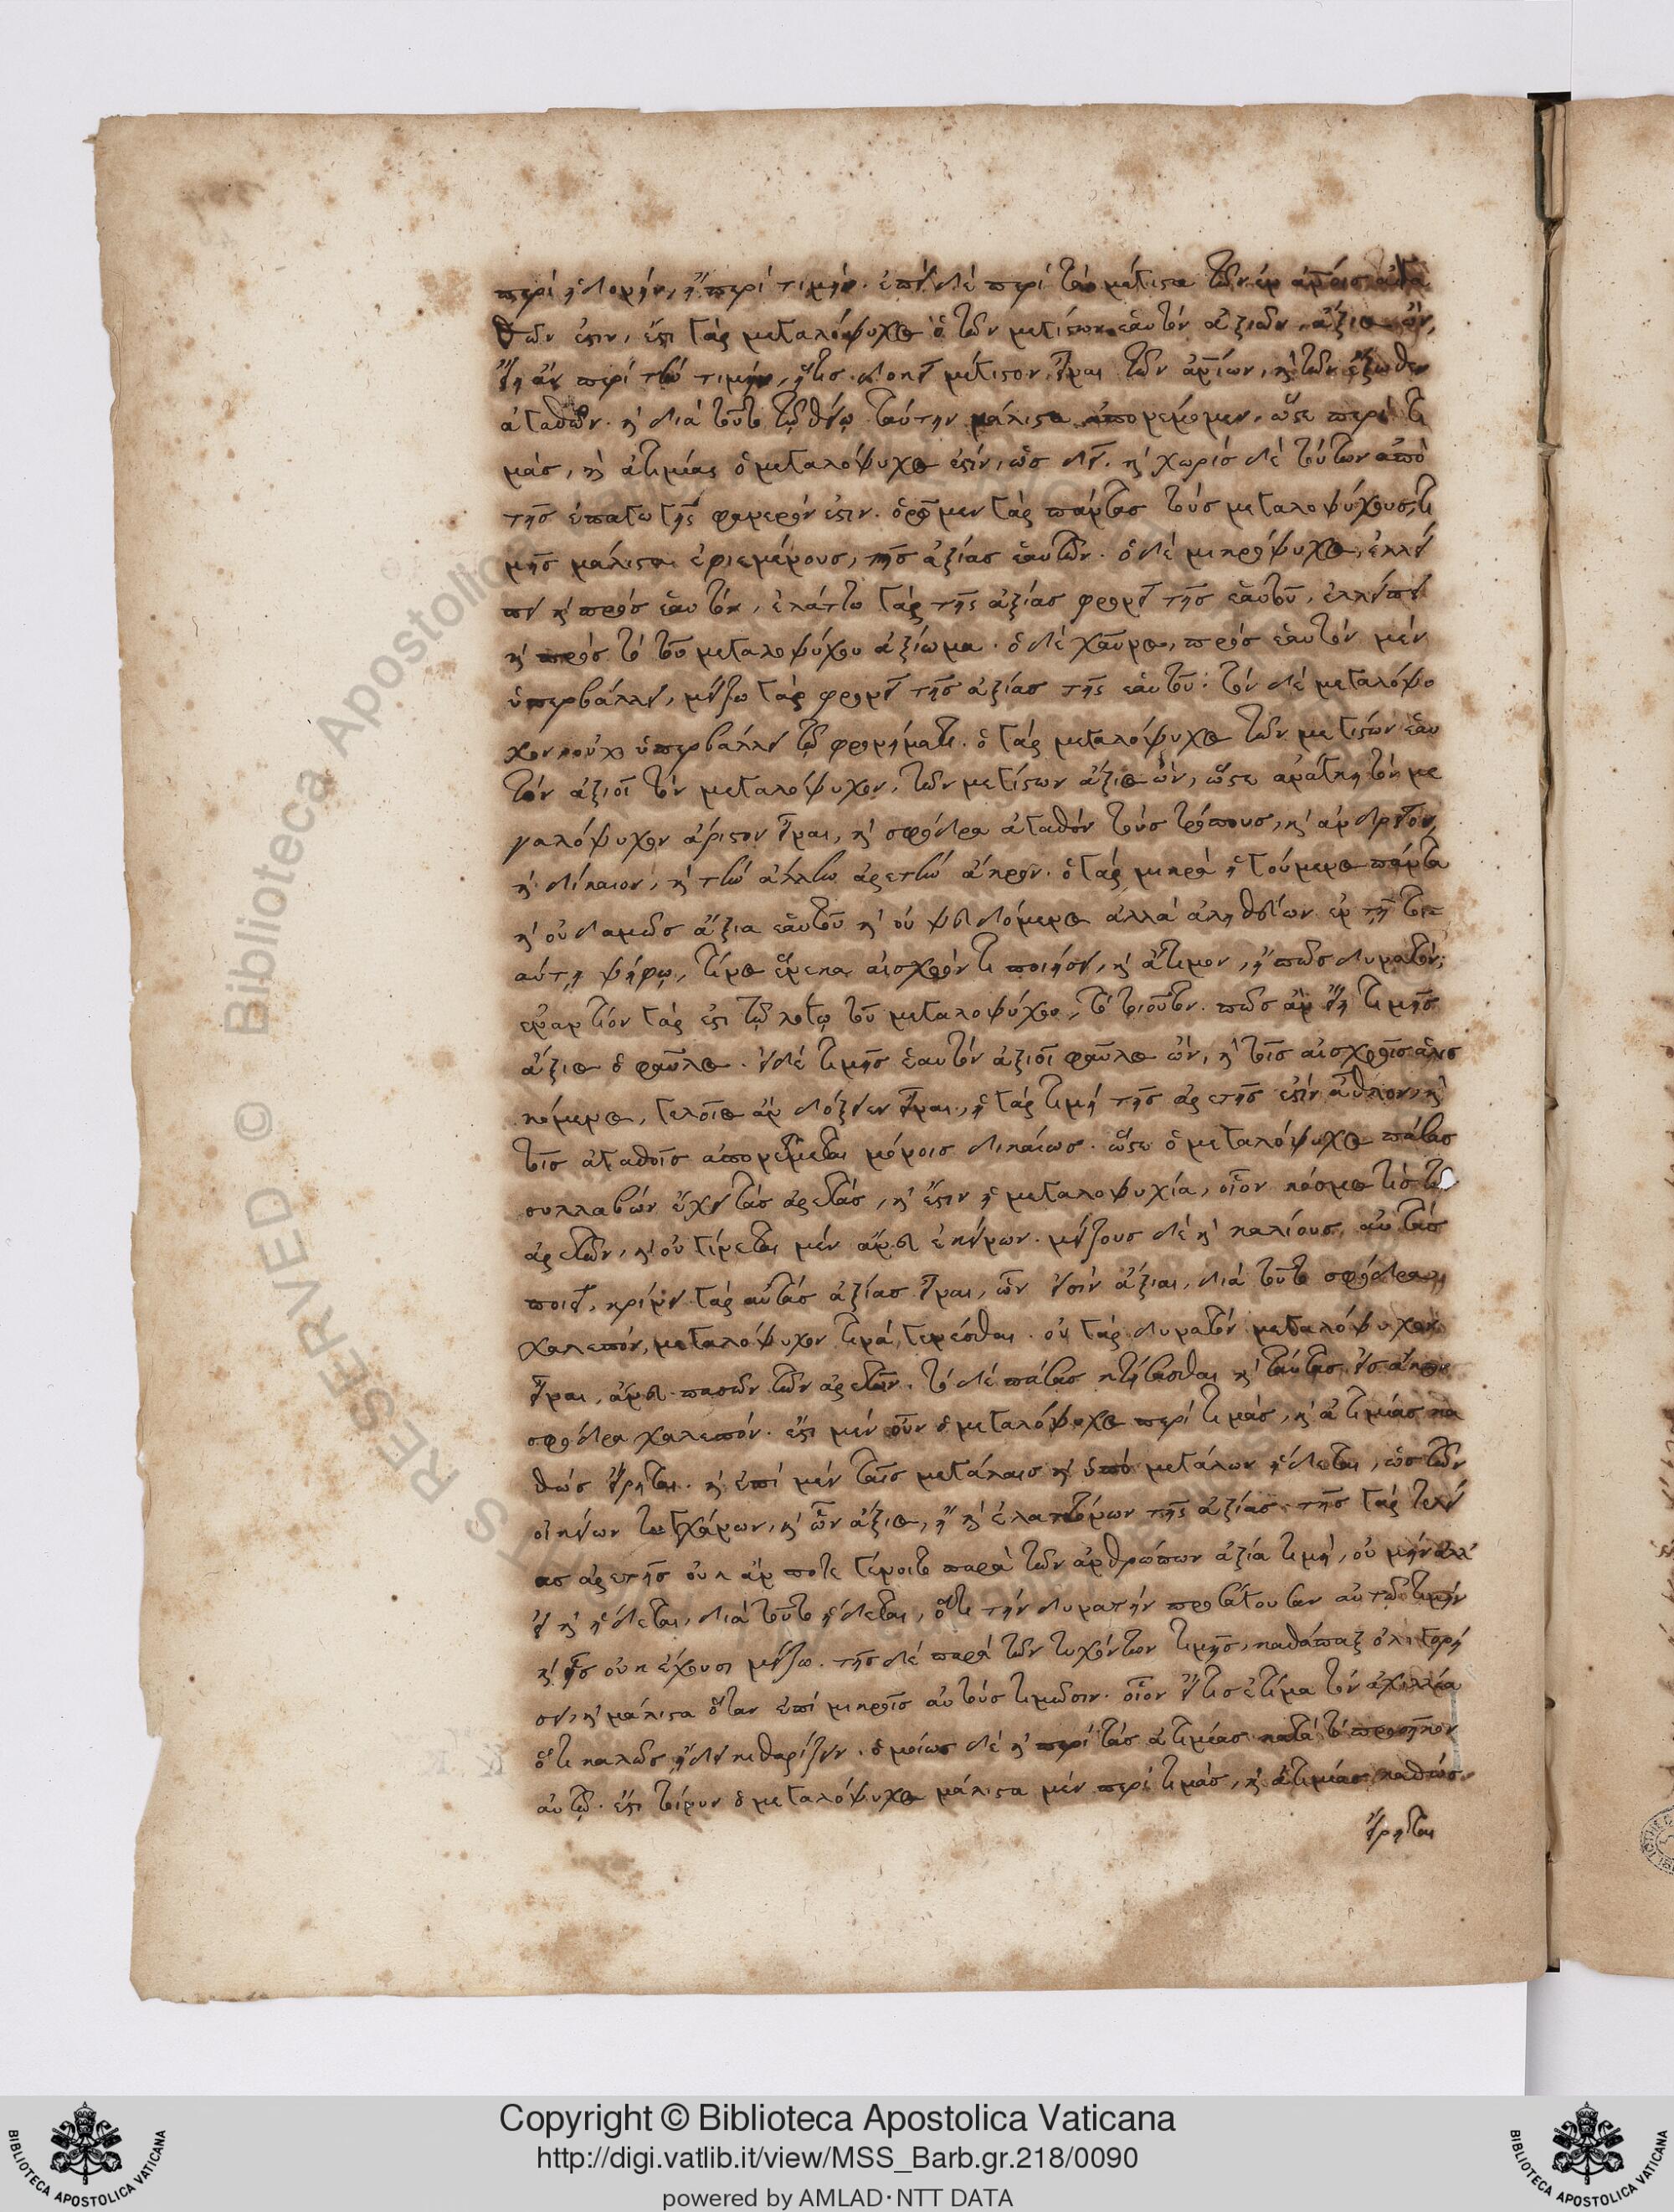 περὶ ἡδονὴν, ἢ περὶ τιμήν. ἐπεὶ δὲ περὶ τὸ μέγιστα τῶν ἐν αὐτοῖς ἀγα
θῶν ἐστιν, ἔστι γὰρ μεγαλόψυχος ὁ τῶν μεγίστων ἑαυτὸν ἀξιῶν, ἄξιος ὤν,
εἴη ἂν περὶ τὴν τιμήν, ἥτις δοκεῖ μέγιστον εἶναι τῶν αἰτίων, καὶ τῶν ἔξωθεν
ἀγαθῶν. καὶ διὰ τοῦτο τῷ θείῳ ταύτην μάλιστα ἀπονέμομεν. ὥστε περὶ τι
μὰς, καὶ ἀτιμίας ὁ μεγαλόψυχός ἐστιν, ὡς δεῖ. καὶ χωρὶς δὲ τούτων ἀπὸ
τῆς ἐπαγωγῆς φανερόν ἐστιν. ὁρῶμεν γὰρ πάντας τοὺς μεγαλοψύχους, τι
μῆς μάλιστα ἐφιεμένους, τῆς ἀξίας ἑαυτῶν. ὁ δὲ μικρόψυχος, ἐλλεί
πει καὶ πρὸς ἑαυτὸν, ἐλάττω γὰρ τῆς ἀξίας φρονεῖ τῆς ἑαυτοῦ, ἐλλείπει
καὶ πρὸς τὸ τοῦ μεγαλοψύχου ἀξίωμα. ὁ δὲ χαῦνος, πρὸς ἑαυτὸν μὲν
ὑπερβάλλει, μείζω γὰρ φρονεῖ τῆς ἀξίας τῆς ἑαυτοῦ. τὸν δὲ μεγαλόψυ
χον οὐχ ὑπερβάλλει τῷ φρονήματι. ὁ γὰρ μεγαλόψυχος τῶν μεγίστων ἑαυ
τὸν ἀξιοῖ τὸν μεγαλόψυχον, τῶν μεγίστων ἄξιος ὤν, ὥστε ἀνάγκη τὸν με
γαλόψυχον ἄριστον εἶναι, καὶ σφόδρα ἀγαθὸν τοὺς τρόπους, καὶ ἀνδρεῖον,
καὶ δίκαιον, καὶ τὴν ἄλλην ἀρετὴν ἄκρον. ὁ γὰρ μικρὰ ἡγούμενος πάντα
καὶ οὐδαμῶς ἄξια ἑαυτοῦ καὶ οὐ ψευδόμενος ἀλλὰ ἀληθεύων ἐν τῇ τοι
αύτῃ ψήφῳ, τίνος ἕνεκα αἰσχρόν τι ποιήσει, καὶ ἄτιμον, ἢ πῶς δυνατόν;
ἐναντίον γάρ ἐστι τῷ λόγῳ τοῦ μεγαλοψύχου, τὸ τοιοῦτον. πῶς ἂν εἴη τιμῆς
ἄξιος ὁ φαῦλος. εἰ δὲ τιμῆς ἑαυτὸν ἀξιοῖ φαῦλος ὤν, καὶ τοῖς αἰσχροῖς ἁλισ
κόμενος, γελοῖος ἂν δόξειεν εἶναι, ἡ γὰρ τιμὴ τῆς ἀρετῆς ἐστὶν ἆθλον, καὶ
τοῖς ἀγαθοῖς ἀπονέμεται μόνοις δικαίως. ὥστε ὁ μεγαλόψυχος πάσας
συλλαβὼν ἔχει τὰς ἀρετάς, καὶ ἔστιν ἡ μεγαλοψυχία, οἷον κόσμος τις τῶν
ἀρετῶν, καὶ οὐ γίνεται μὲν ἄνευ ἐκείνων. μείζους δὲ καὶ καλλίους αὐτὰς
ποιεῖ, κρίνει γὰρ αὐτὰς ἀξίας εἶναι, ὧν εἰσὶν ἄξιαι, διὰ τοῦτο σφόδρα
χαλεπὸν, μεγαλόψυχον τινὰ γενέσθαι. οὐ γὰρ δυνατὸν μεγαλόψυχον
εἶναι, ἄνευ πασῶν τῶν ἀρετῶν. τὸ δὲ πάσας κτήσασθαι καὶ ταύτας εἰς ἄκρον
σφόδρα χαλεπόν. ἔστι μὲν οὖν ὁ μεγαλόψυχος περὶ τιμὰς, καὶ ἀτιμίας κα
θὼς εἴρηται. καὶ ἐπὶ μὲν ταῖς μεγάλαις καὶ ὑπὸ μεγάλων ἥδεται, ὡς τῶν
οἰκείων τυγχάνων, καὶ ὧν ἄξιος, ἢ καὶ ἐλαττόνων τῆς ἀξίας. τῆς γὰρ τελεί
ας ἀρετῆς οὐκ ἄν ποτε γένοιτο παρὰ τῶν ἀνθρώπων ἀξία τιμή, οὐ μὴν ἀλλ'
εἰ καὶ ἥδεται, διὰ τοῦτο ἥδεται, ὅτι τὴν δυνατὴν προσάγουσιν αὐτῷ τιμὴν
καὶ εἷς οὐκ ἔχουσι μείζω. τῆς δὲ παρὰ τῶν τυχόντων τιμῆς, καθάπαξ ὀλιγωρή
σει, καὶ μάλιστα ὅταν ἐπὶ μικροῖς αὐτοὺς τιμῶσιν. οἷον εἴ τις ἐτίμα τὸν ἀχιλλέα
ὅτι καλῶς ᾔδει κιθαρίζειν. ὁμοίως δὲ καὶ περὶ τὰς ἀτιμίας κατὰ τὸ προσῆκον
αὐτῷ. ἔστι τοίνυν ὁ μεγαλόψυχος μάλιστα μὲν περὶ τιμὰς, καὶ ἀτιμίας καθὼς
εἴρηται
Copyright © Biblioteca Apostolica Vaticana
http://digi.vatlib.it/view/MSS_Barb.gr.218/0090
powered by AMLAD·NTT DATA